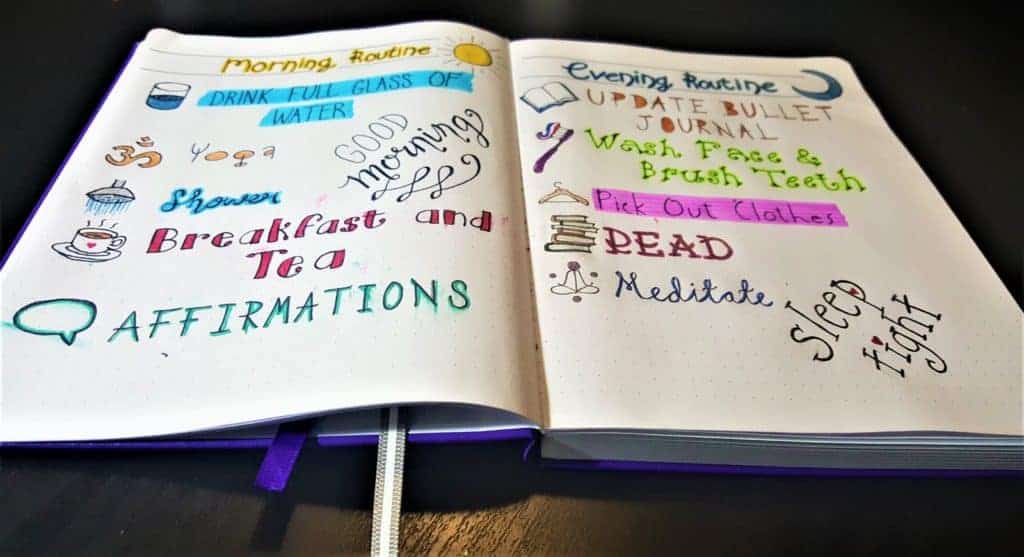 Morning Routine
DRINK FULL GLASS OF
WATER
ॐ Yoga
GOOD
morning
Shower
Breakfast and
Tea
AFFIRMATIONS
Evening Routine
UPDATE BULLET
JOURNAL
Wash Face &
Brush Teeth
Pick Out Clothes
READ
Meditate
sleep
tight